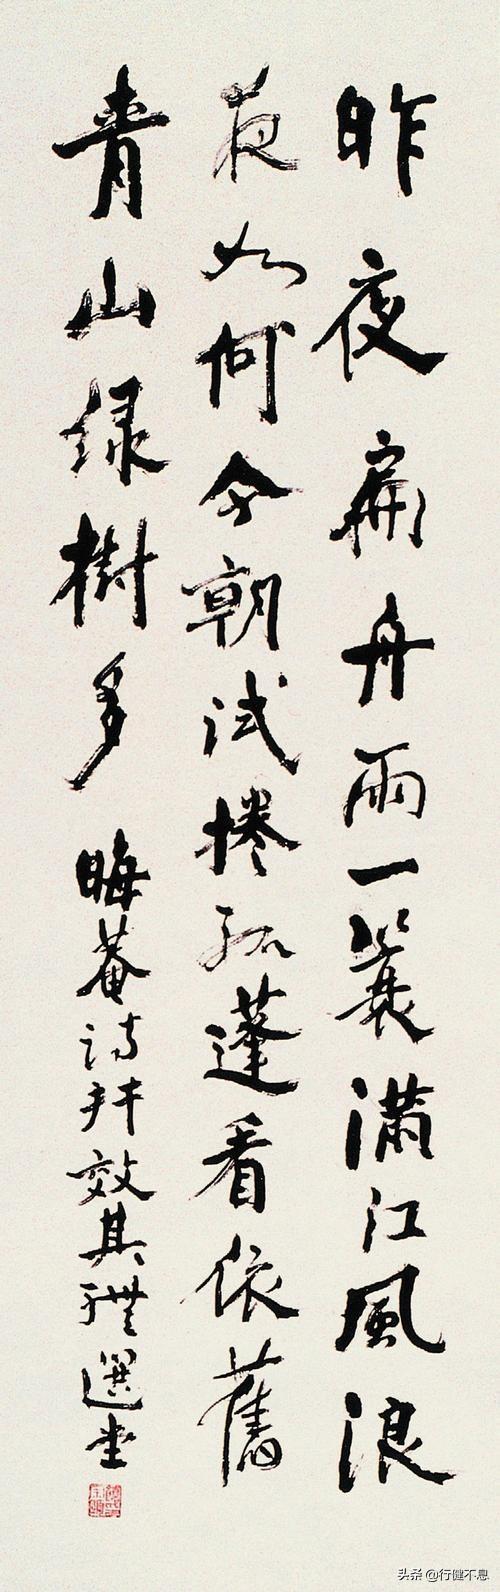 昨夜扁舟雨一蓑滿江風浪
夜如何今朝試捲孤蓬看依舊
青山緑樹多 晦菴詩拜效其體 選堂
头条 @行健不息